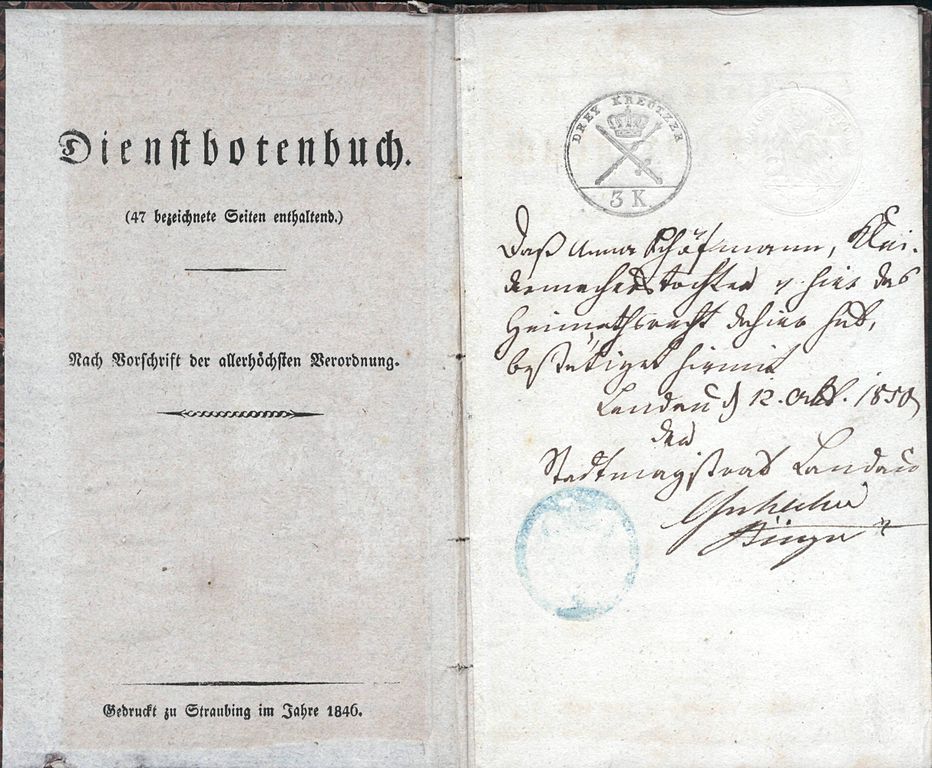 Dienstbotenbuch.
(47 bezeichnete Seiten enthaltend.)
Nach Vorschrift der allerhöchsten Verordnung.
Gedruckt zu Straubing im Jahre 1846.
DREY KREUTZER
3 K
Daß Anna Schöfmann, Klei-
dermacherstochter v. hier das
Heimathsrecht dahier hat,
bestätiget hiemit
Landau d 12. Okt. 1850
der
Stadtmagistrat Landau